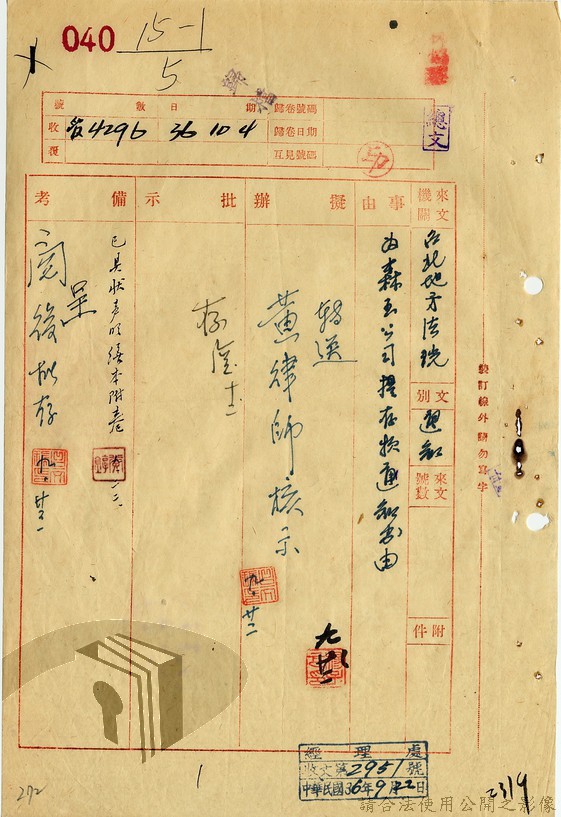 040
15-1
5
總文
號數日期
收 4296 36 10 4
復
歸卷號碼
歸卷日期
互見號碼
來文機關
台北地方法院
文別
通知
來文號數
附件
事由
為森玉公司提存款通知書由
擬辦
轉送
黃律師核示
九、廿二
批示
存
備考
已具狀聲明繕本附卷
呈
閱後擬存
九、廿二
裝訂線外請勿寫字
經理處
收文第2951號
中華民國36年9月22日
1
272
2319
請合法使用公開之影像